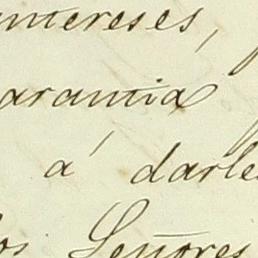 intereses,
garantia
á darle
los Señores